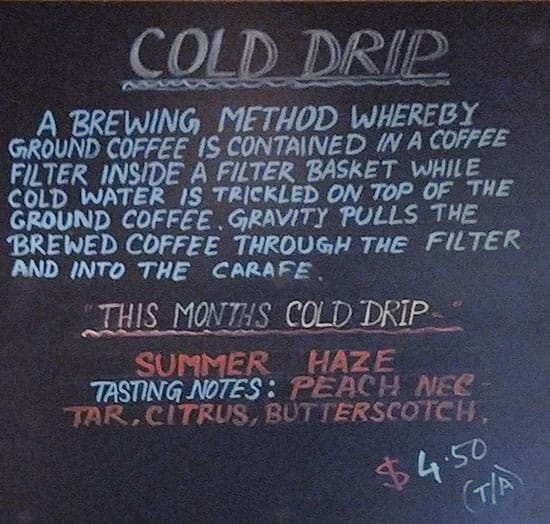 COLD DRIP
A BREWING METHOD WHEREBY
GROUND COFFEE IS CONTAINED IN A COFFEE
FILTER INSIDE A FILTER BASKET WHILE
COLD WATER IS TRICKLED ON TOP OF THE
GROUND COFFEE. GRAVITY PULLS THE
BREWED COFFEE THROUGH THE FILTER
AND INTO THE CARAFE.
"THIS MONTHS COLD DRIP-"
SUMMER HAZE
TASTING NOTES: PEACH NEC-
TAR, CITRUS, BUTTERSCOTCH.
$4.50
(T/A)